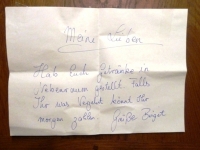 Meine Lieben
Hab Euch Getränke in
Nebenraum gestellt Falls
Ihr was Vergeht könnt Ihr
morgen zahlen Grüße Birgit